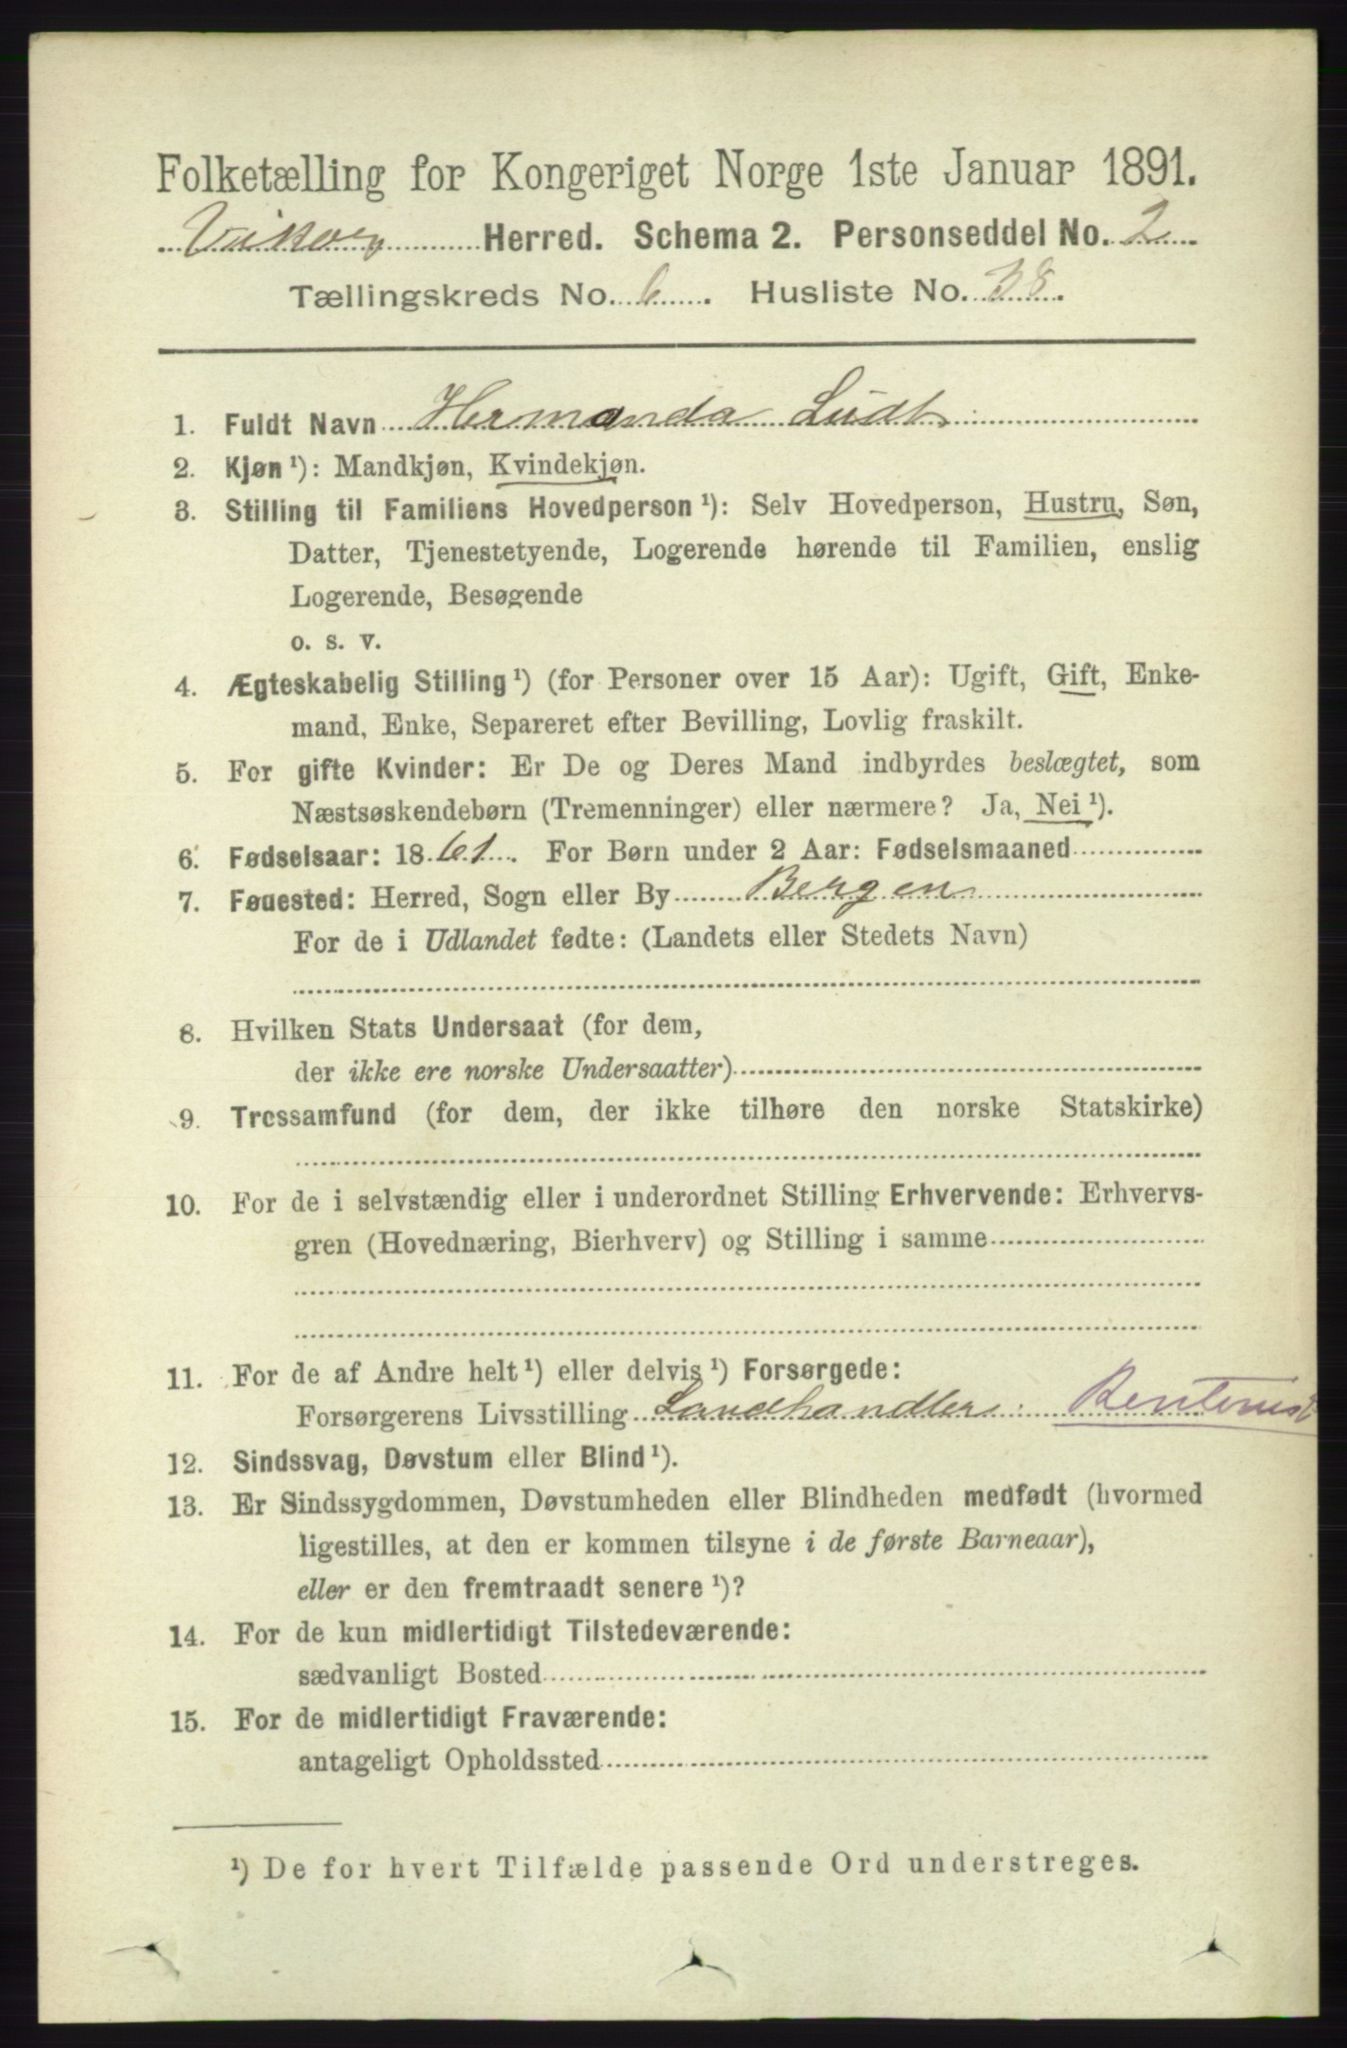 Folketælling for Kongeriget Norge 1ste Januar 1891.
Vikøer Herred. Schema 2. Personseddel No. 2
Tællingskreds No. 6. Husliste No. 38.
1. Fuldt Navn Hermanda Lüdt
2. Kjøn ¹): Mandkjøn, Kvindekjøn.
3. Stilling til Familiens Hovedperson ¹): Selv Hovedperson, Hustru, Søn,
Datter, Tjenestetyende, Logerende hørende til Familien, enslig
Logerende, Besøgende
o. s. v.
4. Ægteskabelig Stilling ¹) (for Personer over 15 Aar): Ugift, Gift, Enke-
mand, Enke, Separeret efter Bevilling, Lovlig fraskilt.
5. For gifte Kvinder: Er De og Deres Mand indbyrdes beslægtet, som
Næstsøskendebørn (Tremenninger) eller nærmere? Ja, Nei ¹).
6. Fødselsaar: 1861. For Børn under 2 Aar: Fødselsmaaned
7. Føuested: Herred, Sogn eller By Bergen
For de i Udlandet fødte: (Landets eller Stedets Navn)
8. Hvilken Stats Undersaat (for dem,
der ikke ere norske Undersaatter)
9. Trossamfund (for dem, der ikke tilhøre den norske Statskirke)
10. For de i selvstændig eller i underordnet Stilling Erhvervende: Erhvervs-
gren (Hovednæring, Bierhverv) og Stilling i samme
11. For de af Andre helt ¹) eller delvis ¹) Forsørgede:
Forsørgerens Livsstilling Landhandler: Rentenist
12. Sindssvag, Døvstum eller Blind ¹).
13. Er Sindssygdommen, Døvstumheden eller Blindheden medfødt (hvormed
ligestilles, at den er kommen tilsyne i de første Barneaar),
eller er den fremtraadt senere ¹)?
14. For de kun midlertidigt Tilstedeværende:
sædvanligt Bosted
15. For de midlertidigt Fraværende:
antageligt Opholdssted
¹) De for hvert Tilfælde passende Ord understreges.